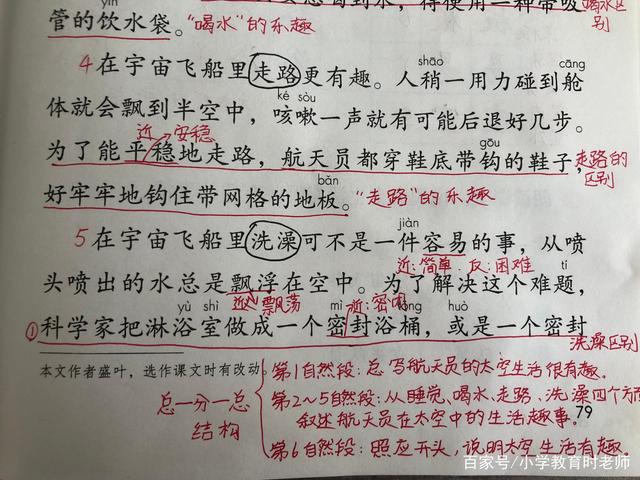 yǐn
管的饮水袋。"喝水"的乐趣
喝水区别
shāo cāng
4 在宇宙飞船里走路更有趣。人稍一用力碰到舱
ké sòu
体就会飘到半空中，咳嗽一声就有可能后退好几步。
近 安稳 gōu
为了能平稳地走路，航天员都穿鞋底带钩的鞋子，走路的区别
bǎn
好牢牢地钩住带网格的地板。"走路"的乐趣
jiàn
5 在宇宙飞船里洗澡可不是一件容易的事，从喷
近：简单 反：困难 tí
头喷出的水总是飘浮在空中。为了解决这个难题，
yù shì 近 飘荡 mì 近：密闭 tǒng huò
①科学家把淋浴室做成一个密封浴桶，或是一个密封
洗澡区别
本文作者盛叶，选作课文时有改动
总一分一总
结构
第1自然段：总写航天员的太空生活很有趣。
第2～5自然段：从睡觉、喝水、走路、洗澡四个方
叙述航天员在太空中的生活趣事。
79
第6自然段：照应开头，说明太空生活有趣。
百家号/小学教育时老师